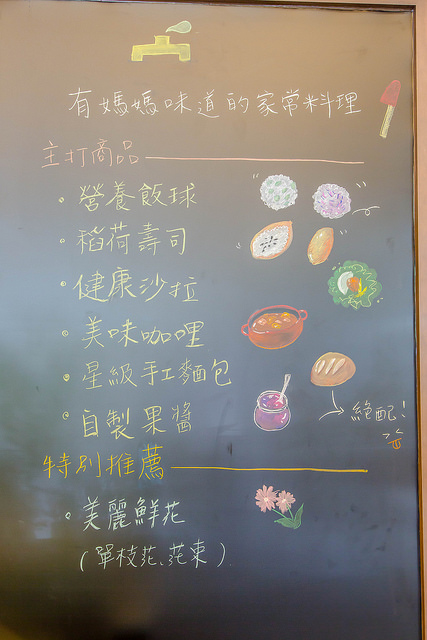 有媽媽味道的家常料理
主打商品
・營養飯球
・稻荷壽司
・健康沙拉
・美味咖哩
・星級手工麵包
・自製果醬
絕配!
特別推薦
・美麗鮮花
(單枝花、花束)